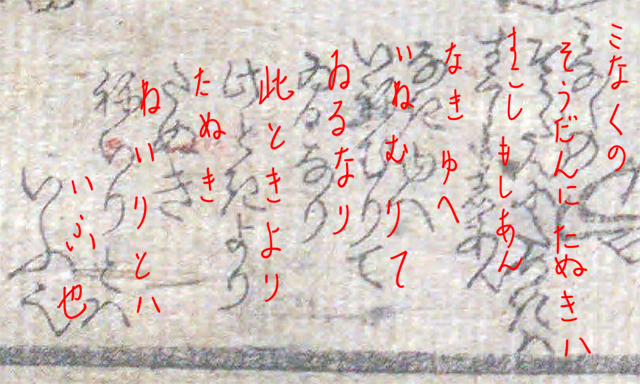 ミなくの
そうだんに たぬきハ
すこしもしあん
なきゆへ
いねむりて
ゐるなり
此ときより
たぬき
ねいりとハ
いふ也